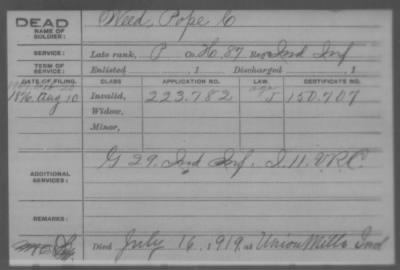 DEAD
NAME OF SOLDIER: Weed, Pope C
SERVICE: Late rank, P Co. H, 87 Reg't Ind Inf
TERM OF SERVICE: Enlisted , 1 Discharged , 1
DATE OF FILING. CLASS APPLICATION NO. LAW. CERTIFICATE NO.
1876. Aug 10 Invalid, 223.782 150.707
Widow,
Minor,
ADDITIONAL SERVICES: G 29. Ind Inf. I. 11. V.R.C.
REMARKS:
Died July 16, 1919, at Union Mills Ind